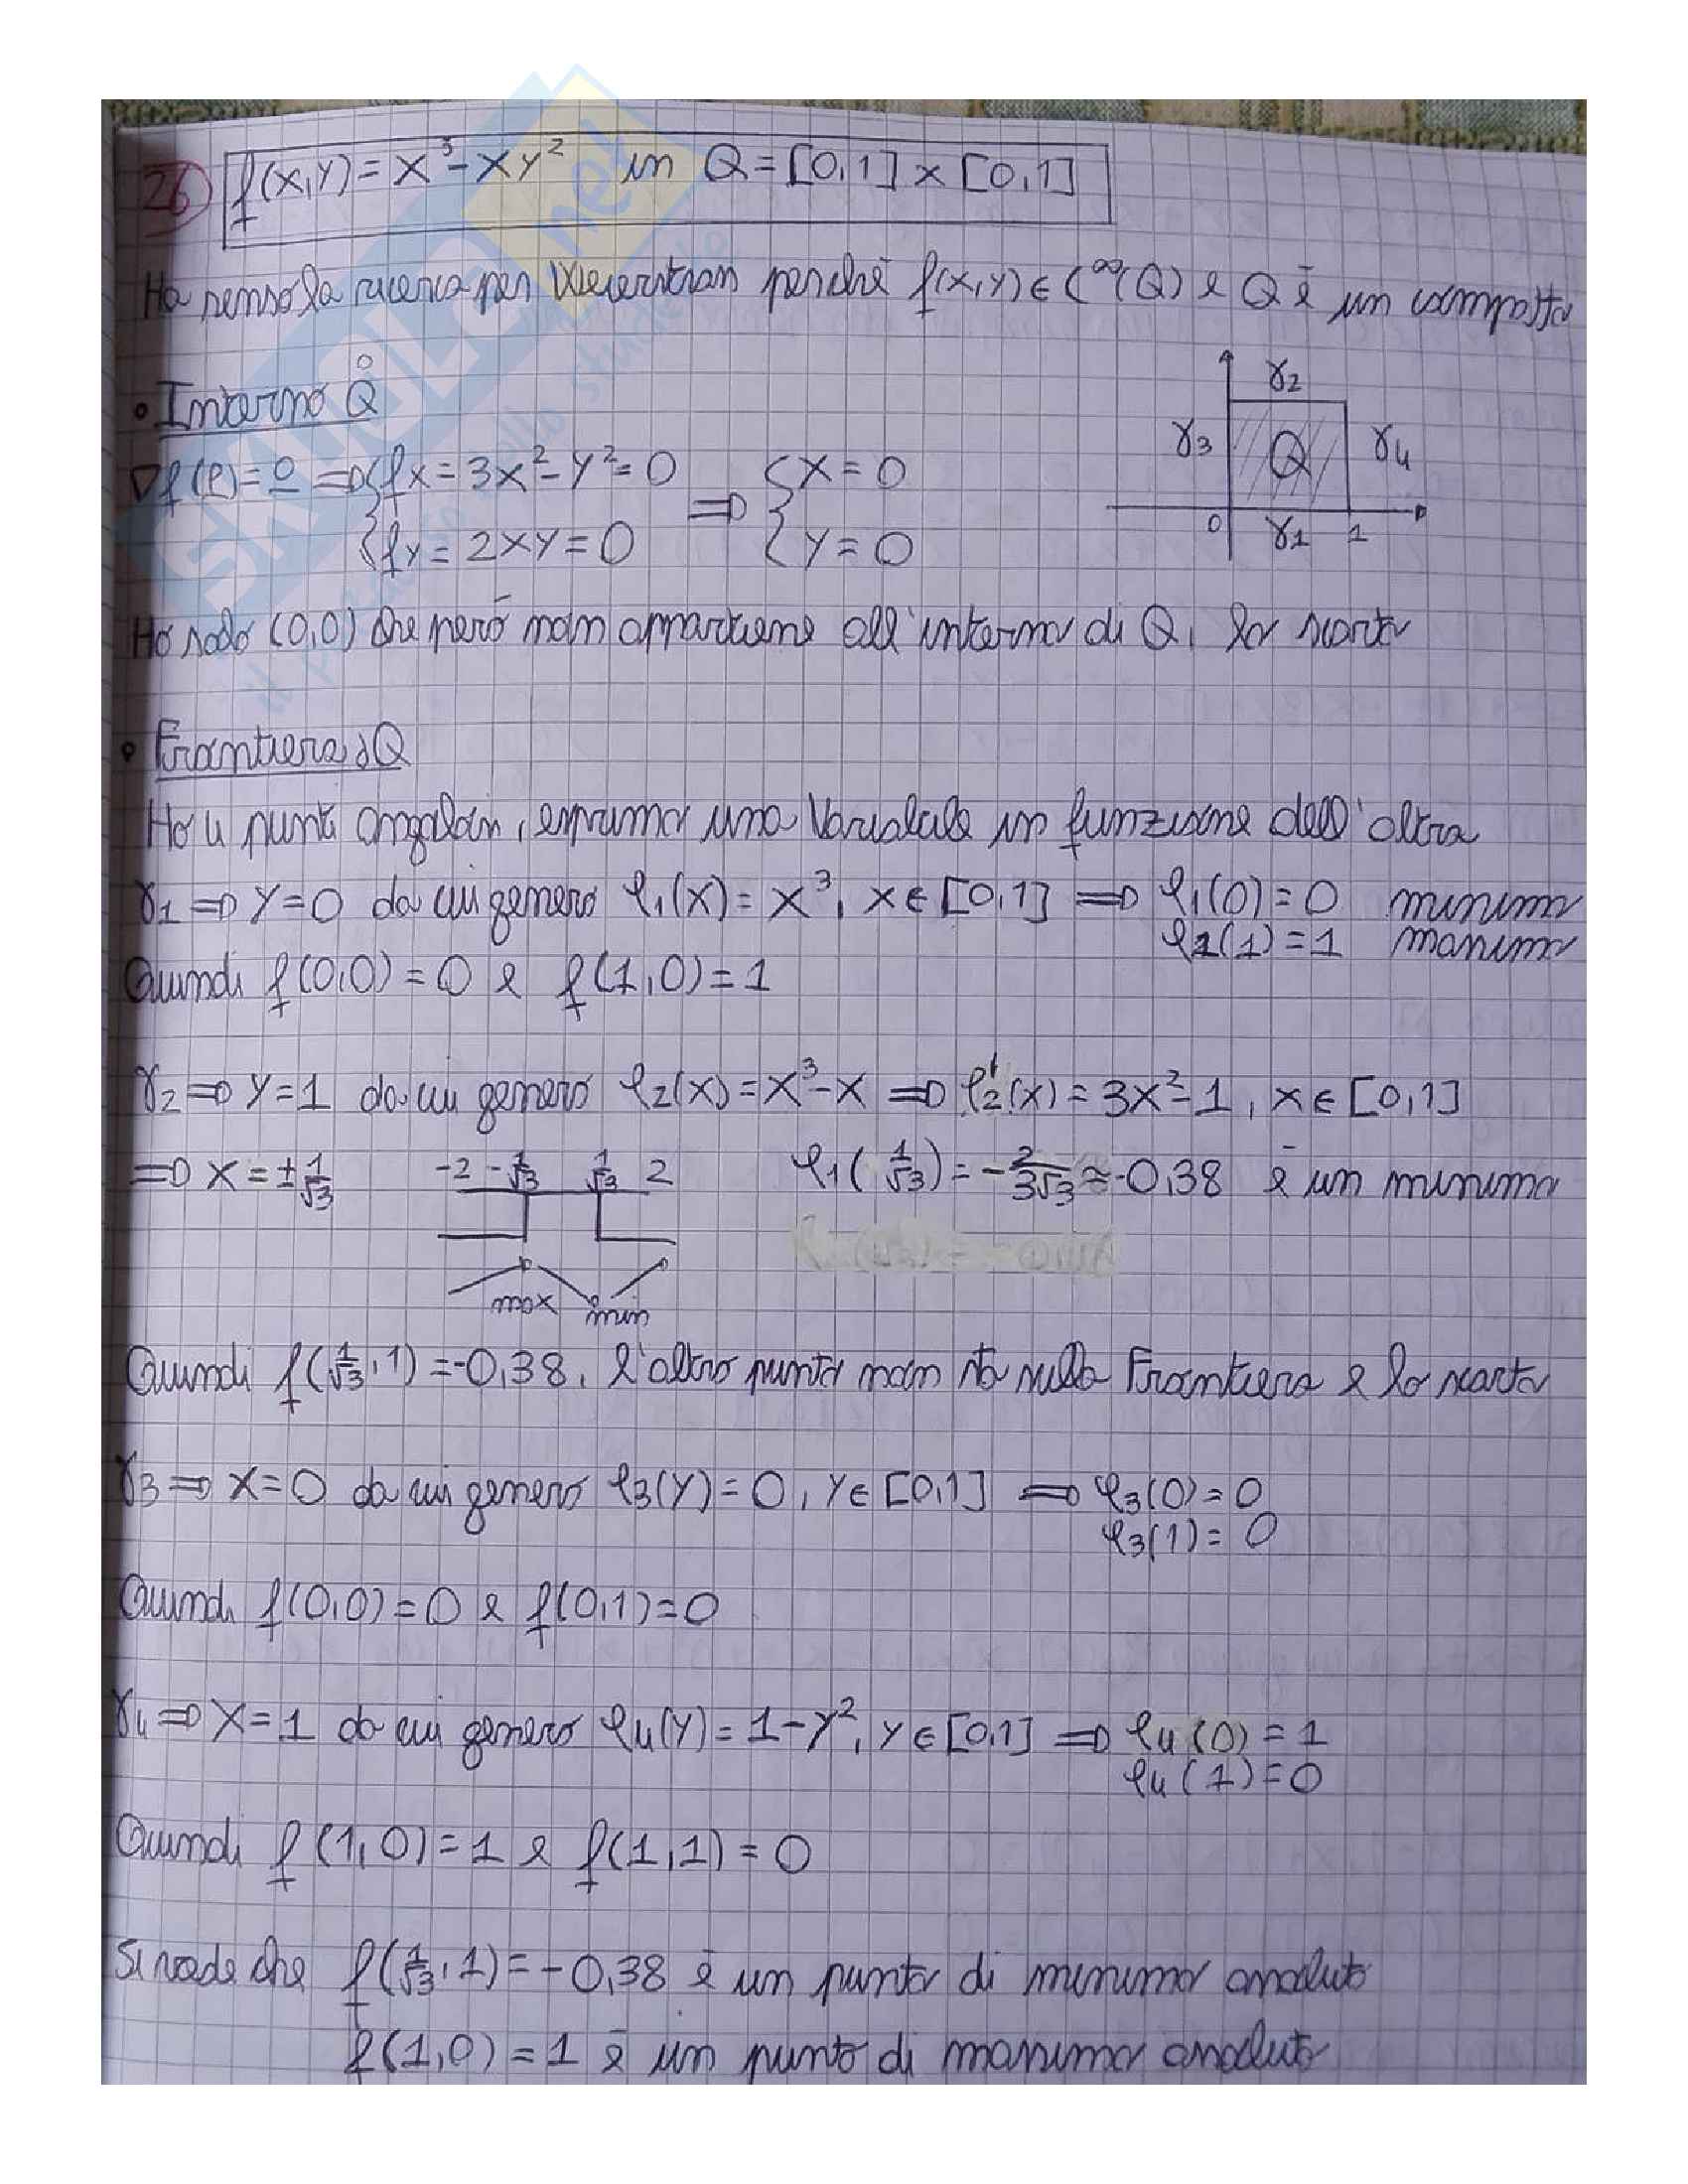 26) f(x,y) = x³ - xy² in Q = [0,1] x [0,1]
Ha senso la ricerca per Weierstrass perché f(x,y) ∈ C^∞(Q) e Q è un compatto
• Interno Q̊
∇f(P) = 0 ⇒ { fx = 3x² - y² = 0 ⇒ { x = 0
{ fy = 2xy = 0 { y = 0
γ2
γ3 Q γ4
0 γ1 1
Ho solo (0,0) che però non appartiene all'interno di Q, lo scarto
• Frontiera ∂Q
Ho 4 punti angolari, esprimo una variabile in funzione dell'altra
γ1 ⇒ y = 0 da cui genero φ1(x) = x³, x ∈ [0,1] ⇒ φ1(0) = 0 minimo
φ1(1) = 1 massimo
Quindi f(0,0) = 0 e f(1,0) = 1
γ2 ⇒ y = 1 da cui genero φ2(x) = x³ - x ⇒ φ2'(x) = 3x² - 1, x ∈ [0,1]
⇒ x = ± 1/√3 -2 -1/√3 1/√3 2 φ1(1/√3) = - 2/3√3 ≈ -0,38 è un minimo
max min
Quindi f(1/√3, 1) = -0,38, l'altro punto non sta nella Frontiera e lo scarto
γ3 ⇒ x = 0 da cui genero φ3(y) = 0, y ∈ [0,1] ⇒ φ3(0) = 0
φ3(1) = 0
Quindi f(0,0) = 0 e f(0,1) = 0
γ4 ⇒ x = 1 da cui genero φ4(y) = 1 - y², y ∈ [0,1] ⇒ φ4(0) = 1
φ4(1) = 0
Quindi f(1,0) = 1 e f(1,1) = 0
Si vede che f(1/√3, 1) = -0,38 è un punto di minimo assoluto
f(1,0) = 1 è un punto di massimo assoluto
SKUOLA.net